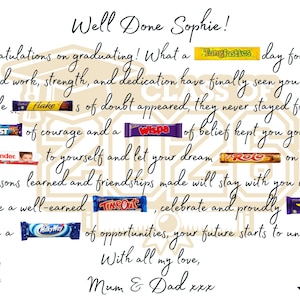 Well Done Sophie!
atulations on graduating! What a Tangfastics day fo
d work, strength, and dedication have finally seen you
Flake s of doubt appeared, they never stayed f
of courage and a Wispa of belief kept you go
nder to yourself and let your dream on
sons learned and friendships made will stay with you
e a well-earned TIMEOUT, celebrate and proudly
a MilkyWay of opportunities, your future starts to un
With all my love,
Mum & Dad xxx